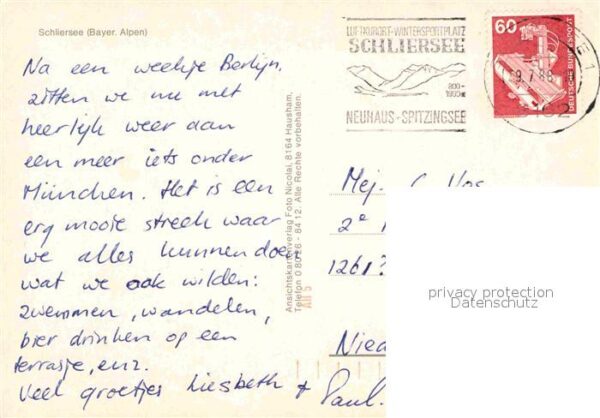 Schliersee (Bayer. Alpen)
Na een weekje Berlijn,
zitten we nu met
heerlijk weer aan
een meer iets onder
München. Het is een
erg mooie streek waar
we alles kunnen doen
wat we ook wilden:
zwemmen, wandelen,
bier drinken op een
terrasje, enz.
Veel groetjes Liesbeth + Paul.
Ansichtskartenverlag Foto Nicolai, 8164 Hausham,
Telefon 0 80 26 - 84 12. Alle Rechte vorbehalten.
LUFTKURORT-WINTERSPORTPLATZ
SCHLIERSEE
NEUHAUS-SPITZINGSEE
60
DEUTSCHE BUNDESPOST
Mej.
2e
1261
privacy protection
Datenschutz